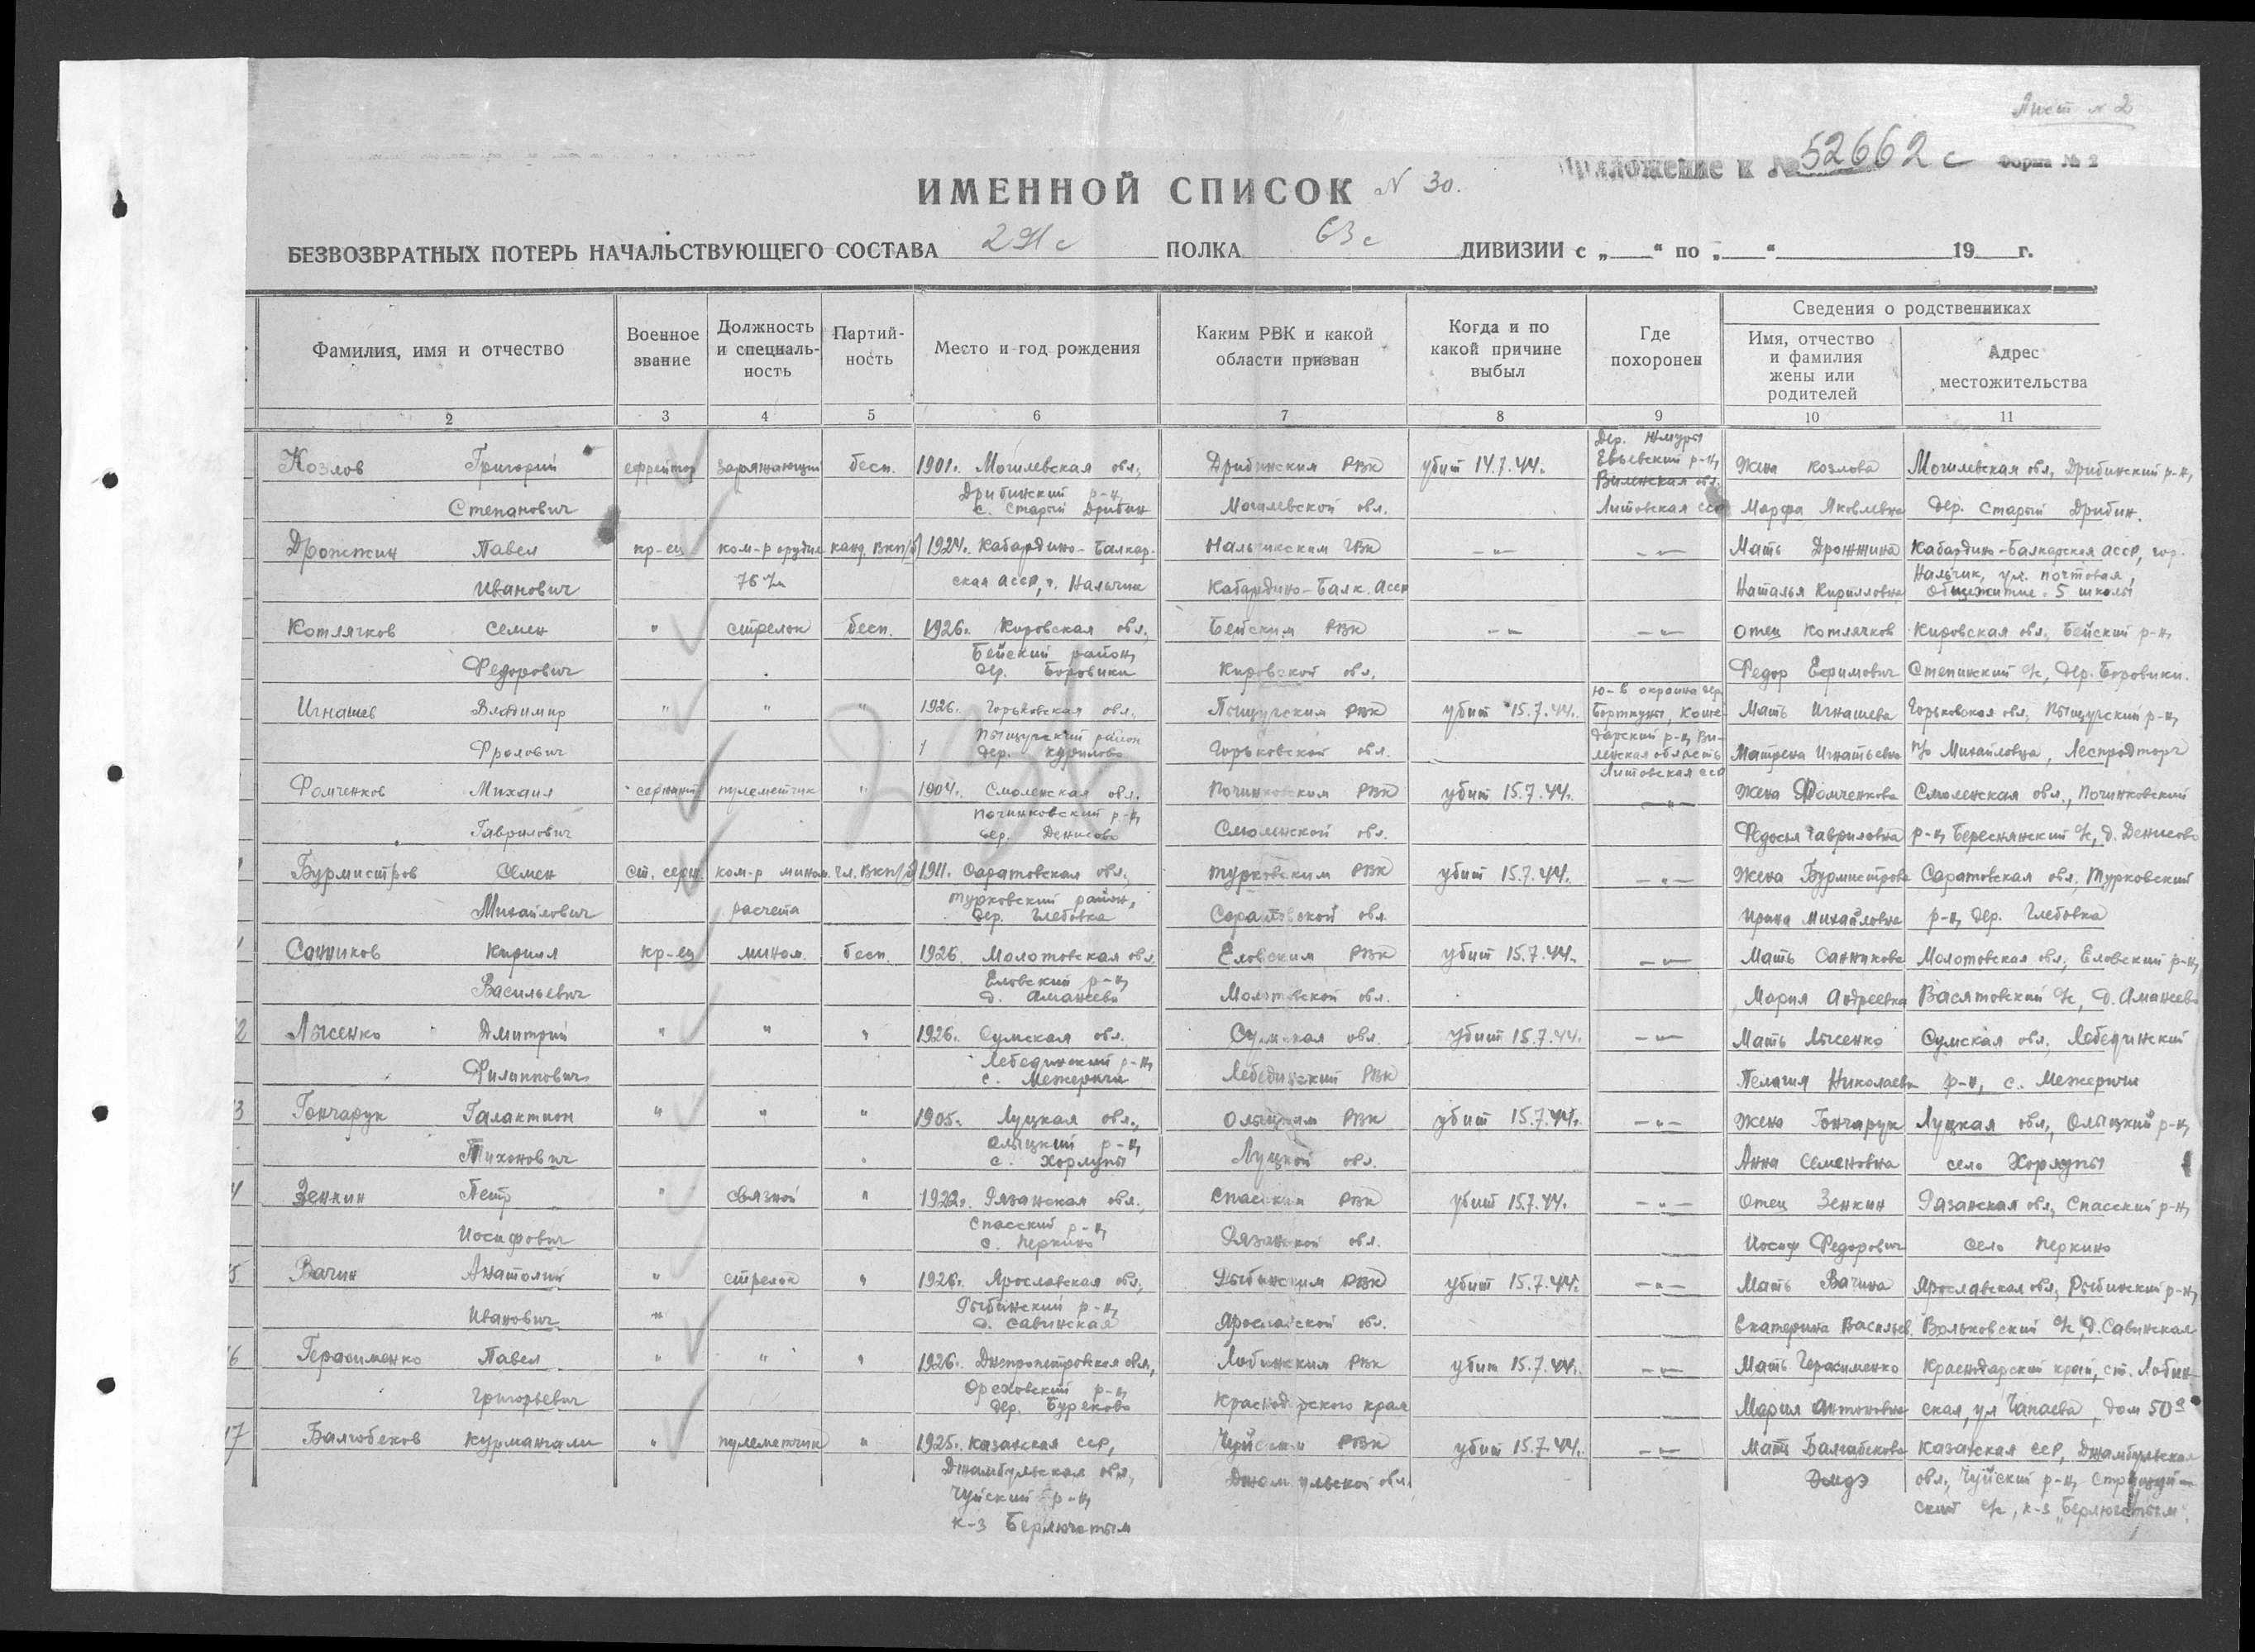 Лист № 2
Приложение к № 52662 с Форма № 2
ИМЕННОЙ СПИСОК № 30.
БЕЗВОЗВРАТНЫХ ПОТЕРЬ НАЧАЛЬСТВУЮЩЕГО СОСТАВА 291 с ПОЛКА 63 с ДИВИЗИИ с „ “ по „ “ 19 г.
Фамилия, имя и отчество
Военное звание
Должность и специальность
Партийность
Место и год рождения
Каким РВК и какой области призван
Когда и по какой причине выбыл
Где похоронен
Сведения о родственниках
Имя, отчество и фамилия жены или родителей
Адрес местожительства
2 3 4 5 6 7 8 9 10 11
Козлов Григорий ефрейтор заряжающий бесп. 1901г. Могилевская обл, Дрибинским РВК убит 14.7.44г. Дер. Жмуры Евьевский р-н, Виленская обл. Жена Козлова Могилевская обл, Дрибинский р-н,
Степанович Дрибинский р-н, с. Старый Дрибин Могилевской обл. Литовская сср Марфа Яковлевна дер. Старый Дрибин.
Дрожжин Павел кр-ец ком-р орудия канд. вкп/б/ 1924г. Кабардино-Балкар- Нальчикским ГВК -"- -"- Мать Дрожжина Кабардино-Балкарская асср, гор.
Иванович 76 м/м ская асср, г. Нальчик Кабардино-Балк. Асср Наталья Кирилловна Нальчик, ул. почтовая, общежитие 5 школы
Котлячков Семен " стрелок бесп. 1926г. Кировская обл, Бейским РВК -"- -"- Отец Котлячков Кировская обл, Бейский р-н,
Федорович Бейский район, дер. Боровики Кировской обл. Федор Ефимович Степинский с/с, дер. Боровики.
Игнашев Владимир " " " 1926г. Горьковская обл. Пыщугским РВК убит 15.7.44г. Ю-в окраина дер. Борткуны, Коше- Мать Игнашева Горьковская обл, Пыщугский р-н,
Фролович Пыщугский район дер. Курилово Горьковской обл. дарский р-н, Ви- ленская область Литовская сср Матрена Игнатьевна п/о Михайловца, Леспродторг
Фомченков Михаил сержант пулеметчик " 1904г. Смоленская обл. Починковским РВК убит 15.7.44г. -"- Жена Фомченкова Смоленская обл., Починковский
Гаврилович Починковский р-н, дер. Денисово Смоленской обл. Федосья Гавриловна р-н, Береснянский с/с, д. Денисово
Бурмистров Семен ст. серж. ком-р мином. чл. Вкп/б/ 1911г. Саратовская обл, Турковским РВК убит 15.7.44г. -"- Жена Бурмистрова Саратовская обл, Турковский
Михайлович расчета Турковский район, дер. Глебовка Саратовской обл. Ирина Михайловна р-н, дер. Глебовка
Санников Кирилл кр-ец мином. бесп. 1926. Молотовская обл. Еловским РВК убит 15.7.44г. -"- Мать Санникова Молотовская обл, Еловский р-н,
Васильевич Еловский р-н, д. Аманеево Молотовской обл. Мария Андреевна Васятовский с/с, д. Аманеево
2 Лысенко Дмитрий " " " 1926г. Сумская обл. Сумская обл. убит 15.7.44. -"- Мать Лысенко Сумская обл, Лебединский
Филиппович Лебединский р-н, с. Межеричи Лебединский РВК Пелагия Николаевн р-н, с. Межеричи
3 Гончарук Галактион " " " 1905г. Луцкая обл., Олыцким РВК убит 15.7.44г. -"- Жена Гончарук Луцкая обл, Олыцкий р-н,
Тихонович Олыцкий р-н, с. Хорлупы Луцкой обл. Анна Семеновна село Хорлупы
4 Зенкин Петр " связной " 1922г. Рязанская обл., Спасским РВК убит 15.7.44г. -"- Отец Зенкин Рязанская обл, Спасский р-н,
Иосифович Спасский р-н, с. Перкино Рязанской обл. Иосиф Федорович село Перкино
5 Вагин Анатолий " стрелок " 1926г. Ярославская обл, Рыбинским РВК убит 15.7.44г. -"- Мать Вагина Ярославская обл, Рыбинский р-н,
Иванович " Рыбинский р-н, д. Савинская Ярославской обл. Екатерина Васильев. Вольковский с/с, д. Савинская
6 Герасименко Павел " " " 1926г. Днепропетровская обл, Лабинским РВК убит 15.7.44г. -"- Мать Герасименко Краснодарский край, ст. Лабин-
Григорьевич Ореховский р-н, дер. Буреково Краснодарского края Мария Антоновна ская, ул Чапаева, дом 50а
17 Балгобеков Курмангали " пулеметчик " 1925г. Казахская сср, Чуйским РВК убит 15.7.44г. -"- Мать Балгабекова Казахская сср, Джамбульская
Джамбульская обл, Джамбульской обл. обл, Чуйский р-н,
Чуйский р-н, с/с, к-з „Берлюгетым“.
к-з Берлюгетым